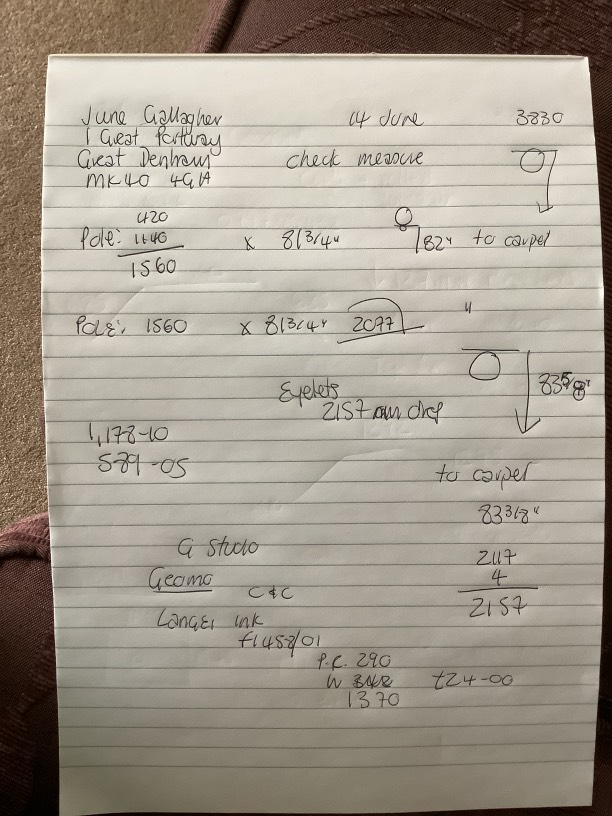 June Gallagher 14 June 3830
1 Great Portway
Great Denham check measure
MK40 4GA
420
Pole: 1140 x 81 3/4" 82" to carpet
1560
Pole: 1560 x 81 3/4" 2077 "
83 5/8"
Eyelets
2157 mm drop
1,178-10
589-05
to carpet
83 3/8"
G Studio 2117
Geomo C & C 4
2157
ink
F1458/01
P.C. 290
W £24-00
1370